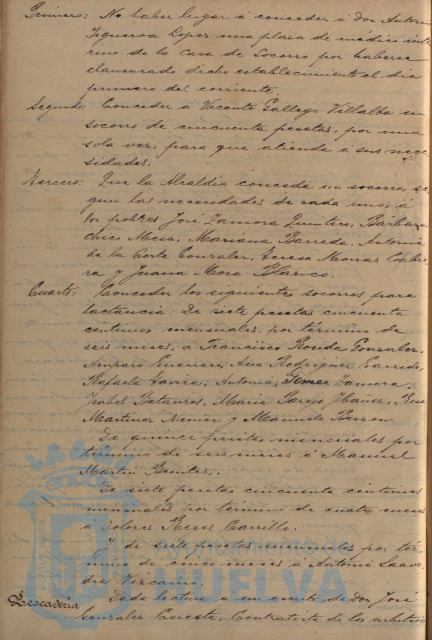 Primero: No haber lugar á conceder á don Antonio
Figueroa Lopez una plaza de médico inte-
rino de la Casa de Socorro por haberse
clausurado dicho establecimiento el dia
primero del corriente.
Segundo: Conceder á Vicente Gallego Villalba un
socorro de cincuenta pesetas, por una
sola vez, para que atienda á sus nece-
sidades.
Tercero: Que la Alcaldia conceda un socorro, se-
gun las necesidades de cada uno, á
los pobres José Zamora Quintero, Bárbara
Mesa, Mariana Barreda, Antonia
de la Corte Gonzalez, Teresa Morras Cabre-
ra y Juana Mora Blanco.
Cuarto: Conceder los siguientes socorros para
lactancia: De siete pesetas cincuenta
céntimos mensuales, por término de
seis meses, a Francisco Gonzalez,
Amparo Guerrero, Ana Rodriguez Garrido,
Rafaela Antonia Gómez Zamora,
Isabel María Rosa
Martinez Nuñez y Manuela
De quince pesetas mensuales por
término de seis meses á Manuel
Martin Benitez.
De siete pesetas cincuenta céntimos
mensuales por término de cuatro meses
á Dolores Reyes Carrillo.
Y de siete pesetas mensuales por tér-
mino de cinco meses á Antonia Saave-
dra Vizcaino.
Pescaderia Dada lectura á un escrito de don José
Gonzalez Cuesta, Contratista de los arbitrios
Ayuntamiento de
HUELVA